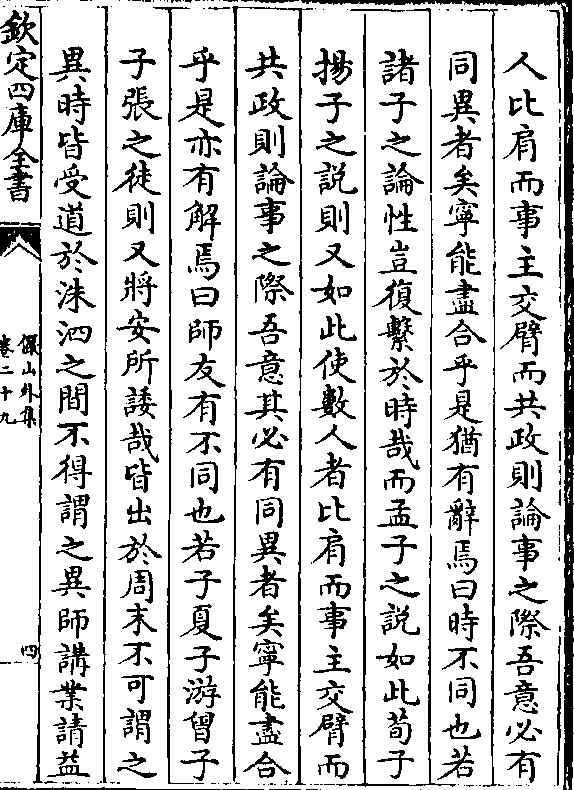 人比肩而事主交臂而共政則論事之際吾意必有
同異者矣寧能盡合乎是猶有辭焉曰時不同也若
諸子之論性豈復繫於時哉而孟子之說如此荀子
揚子之說則又如此使數人者比肩而事主交臂而
共政則論事之際吾意其必有同異者矣寧能盡合
乎是亦有解焉曰師友有不同也若子夏子游曾子
子張之徒則又將安所諉哉皆出於周末不可謂之
異時皆受道於洙泗之間不得謂之異師講業請益
欽定四庫全書
儼山外集
卷二十九
四